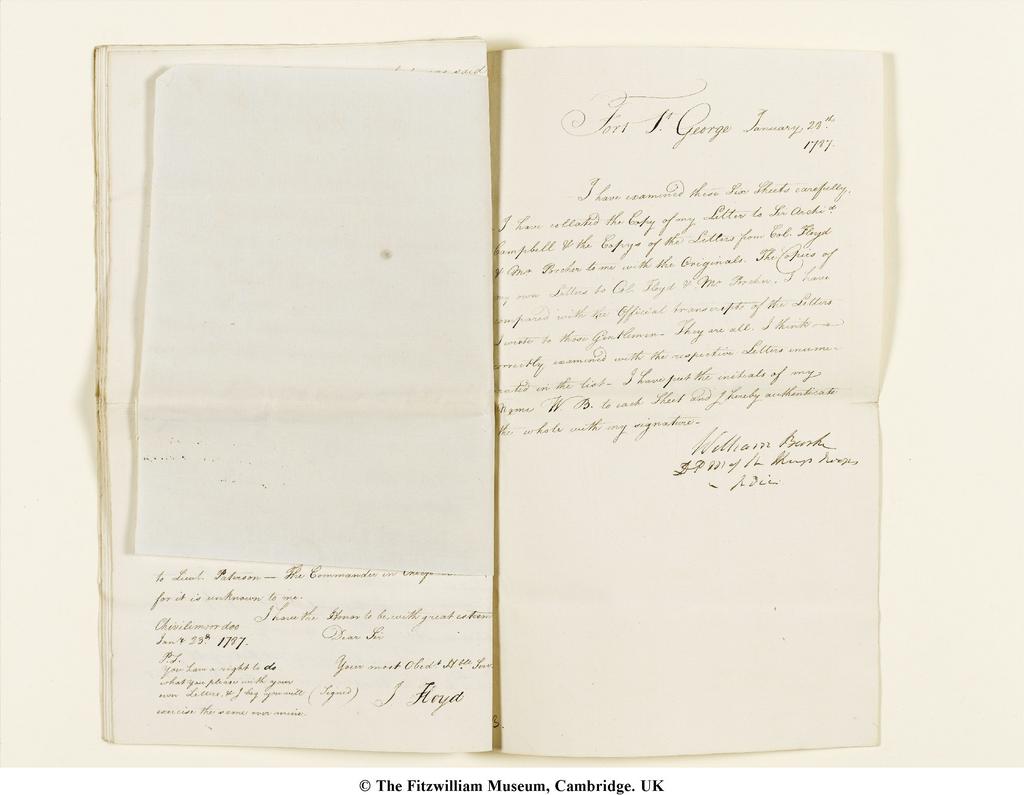 to Lieut. Paterson — The Commander in
for it is unknown to me.
I have the Honor to be, with great esteem
Chivilimoordoo
Jan.y 23th 1787.
Dear Sir
Your most Obed.t H.ble Ser
P.S.
You have a right to do
what you please with your
own Letters, & I beg you will
exercise the same over mine.
(Signed) J Floyd
3.
Fort St. George January 28th
1787.
I have examined these Six Sheets carefully.
I have collated the Copy of my Letter to Sir Archi.d
Campbell & the Copys of the Letters from Col. Floyd
& Mr Porcher to me with the Originals. The Copies of
my own Letters to Col. Floyd & Mr Porcher, I have
compared with the Official transcripts of the Letters
I wrote to those Gentlemen — They are all, I think —
correctly examined with the respective Letters enume-
rated in the list — I have put the initials of my
Name W. B. to each Sheet and I hereby authenticate
the whole with my signature —
William Burke
D P M of the Kings Troops
© The Fitzwilliam Museum, Cambridge. UK